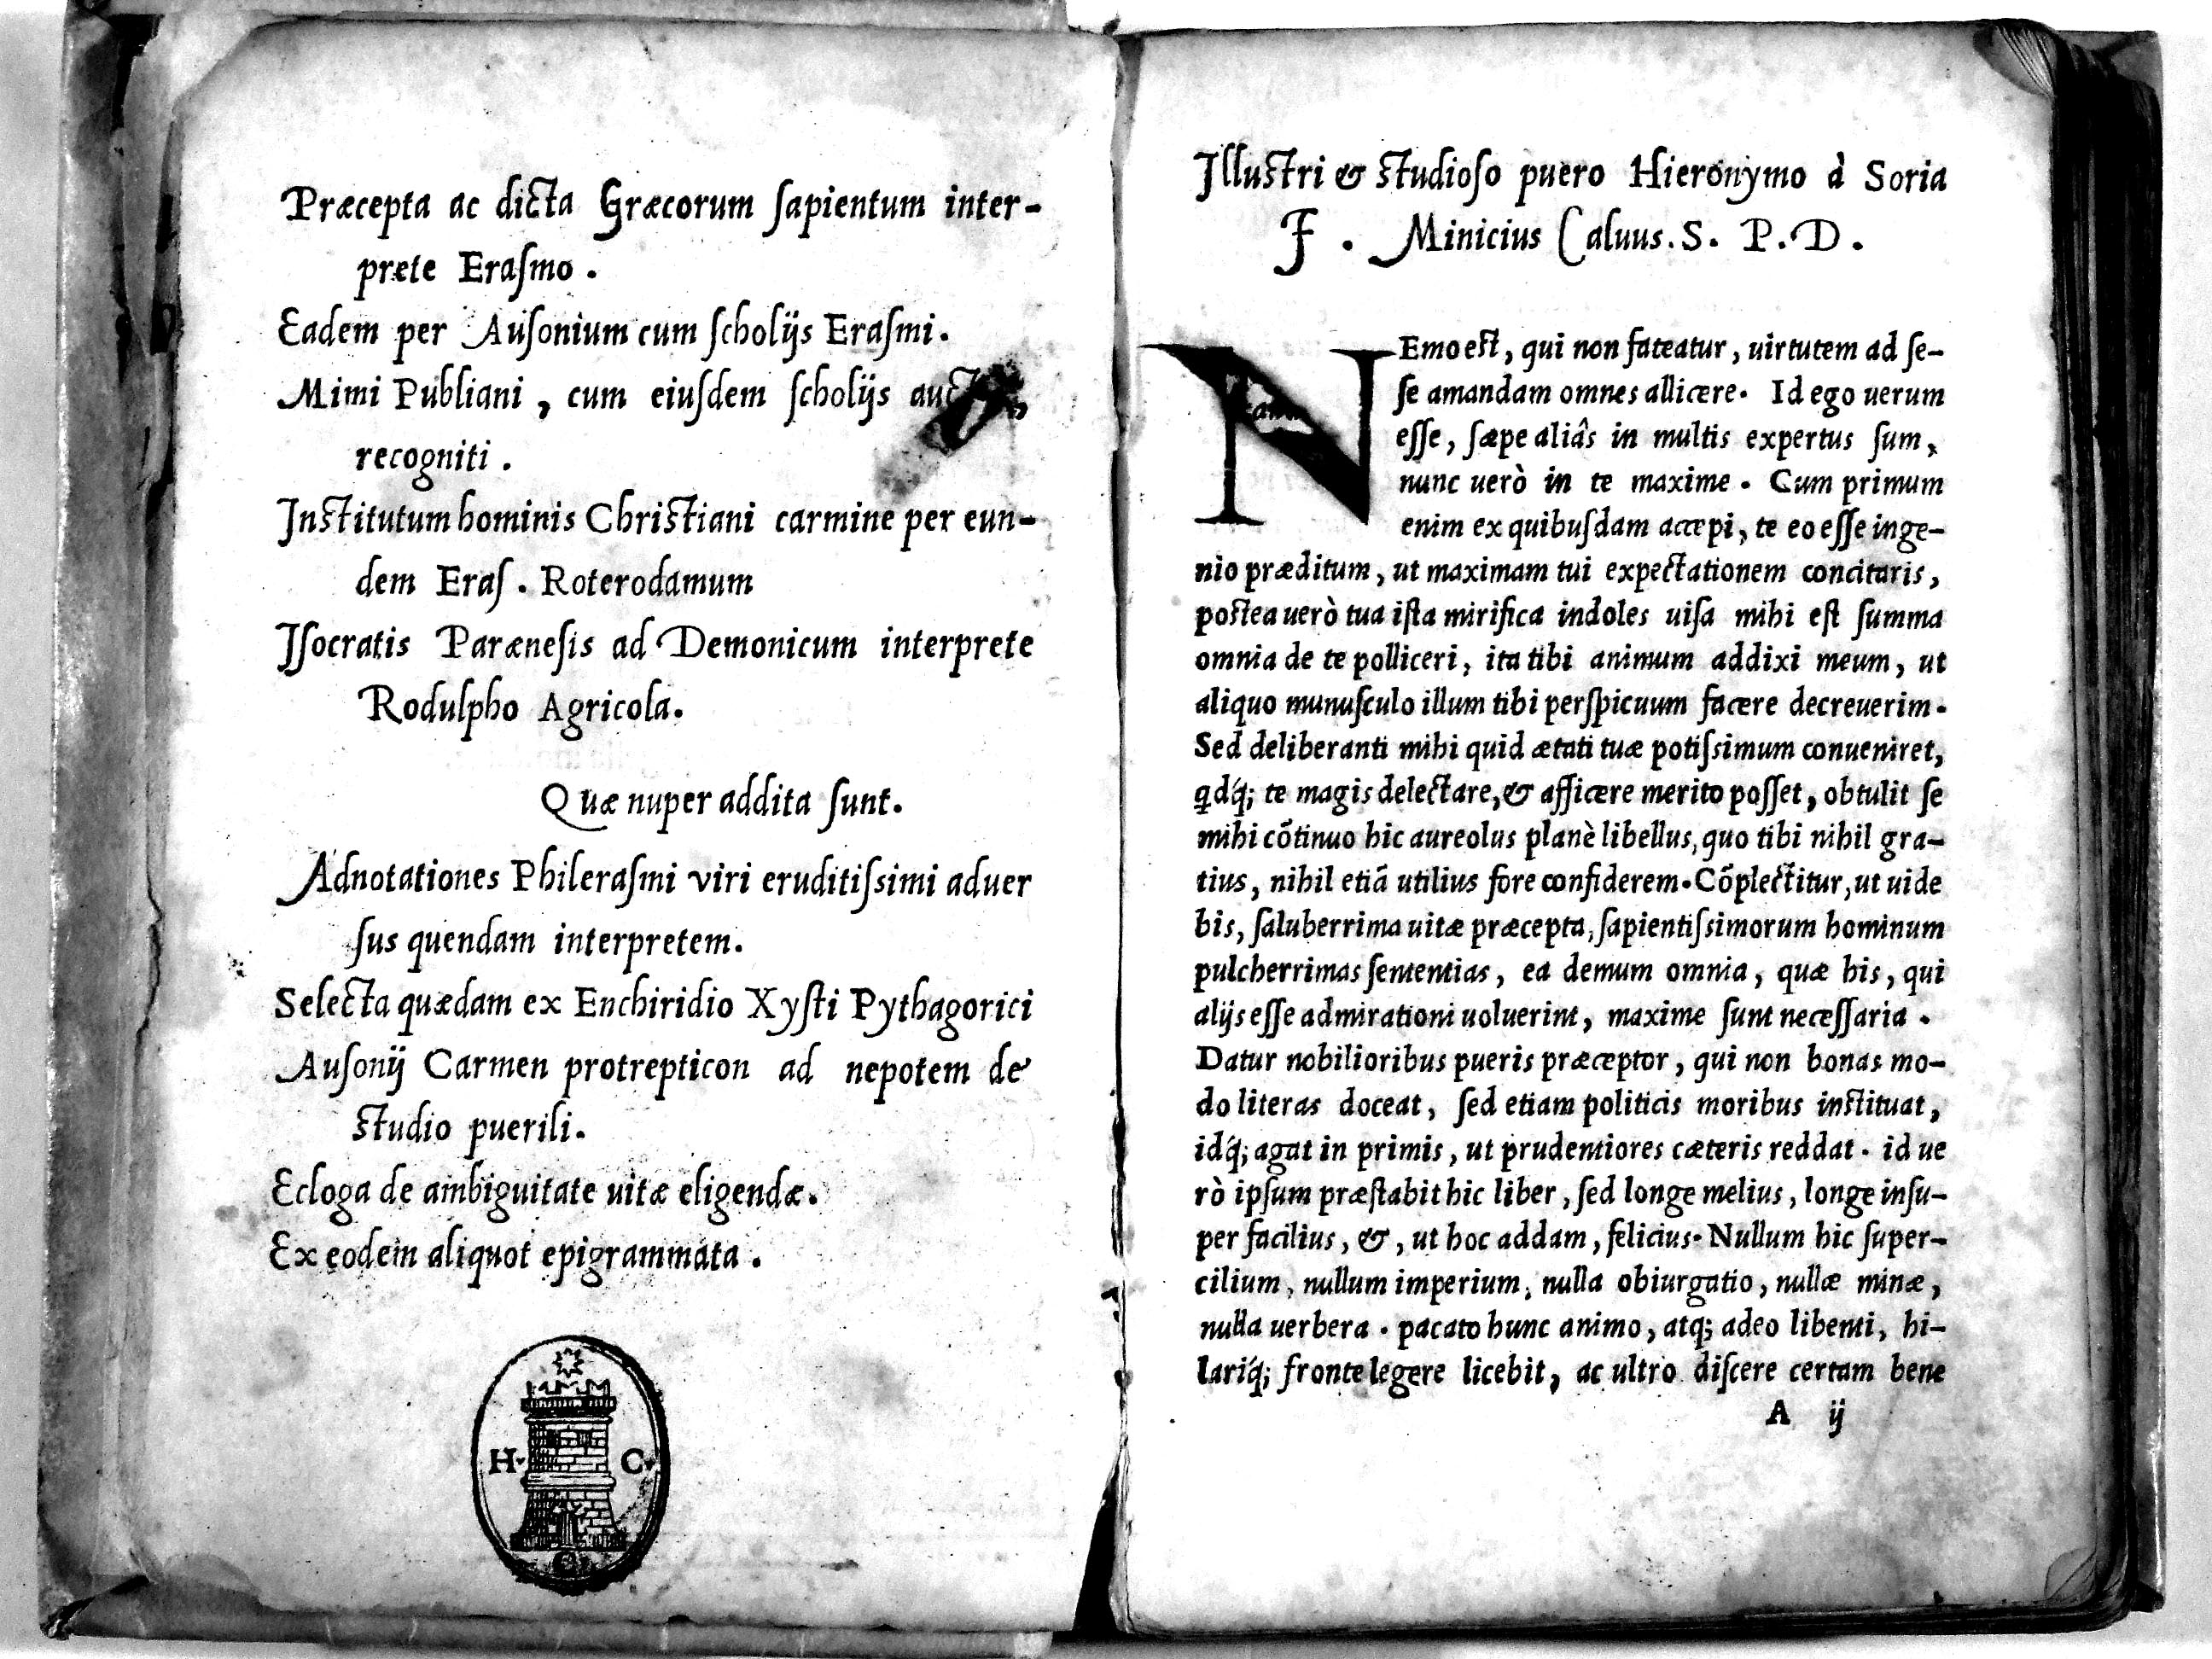 Præcepta ac dicta Græcorum ſapientum inter-
prete Eraſmo.
Eadem per Auſonium cum ſcholijs Eraſmi.
Mimi Publiani, cum eiuſdem ſcholijs
recogniti.
Inſtitutum hominis Chriſtiani carmine per eun-
dem Eraſ. Roterodamum
Iſocratis Parænesis ad Demonicum interprete
Rodulpho Agricola.
Quæ nuper addita ſunt.
Adnotationes Phileraſmi viri eruditiſsimi aduer
ſus quendam interpretem.
Selecta quædam ex Enchiridio Xyſti Pythagorici
Auſonij Carmen protrepticon ad nepotem de
ſtudio puerili.
Ecloga de ambiguitate uitæ eligendæ.
Ex eodem aliquot epigrammata.
H C
Illuſtri & ſtudioſo puero Hieronymo à Soria
F. Minicius Caluus. S. P. D.
NEmo eſt, qui non fateatur, uirtutem ad ſe-
ſe amandam omnes allicere. Id ego uerum
eſſe, ſæpe aliâs in multis expertus ſum,
nunc uerò in te maxime. Cum primum
enim ex quibuſdam accepi, te eo eſſe inge-
nio præditum, ut maximam tui expectationem concitaris,
poſtea uerò tua iſta mirifica indoles uiſa mihi eſt ſumma
omnia de te polliceri, ita tibi animum addixi meum, ut
aliquo munuſculo illum tibi perſpicuum facere decreuerim.
Sed deliberanti mihi quid ætati tuæ potiſsimum conueniret,
qdq́; te magis delectare, & afficere merito poſſet, obtulit ſe
mihi cõtinuo hic aureolus planè libellus, quo tibi nihil gra-
tius, nihil etiã utilius fore confiderem. Cõplectitur, ut uide
bis, ſaluberrima uitæ præcepta, ſapientiſsimorum hominum
pulcherrimas ſententias, ea demum omnia, quæ his, qui
alijs eſſe admirationi uoluerint, maxime ſunt neceſſaria.
Datur nobilioribus pueris præceptor, qui non bonas mo-
do literas doceat, ſed etiam politicis moribus inſtituat,
idq́; agat in primis, ut prudentiores cæteris reddat. id ue
rò ipſum præſtabit hic liber, ſed longe melius, longe inſu-
per facilius, &, ut hoc addam, felicius. Nullum hic ſuper-
cilium, nullum imperium, nulla obiurgatio, nullæ minæ,
nulla uerbera. pacato hunc animo, atq; adeo libenti, hi-
lariq́; fronte legere licebit, ac ultro diſcere certam bene
A ij